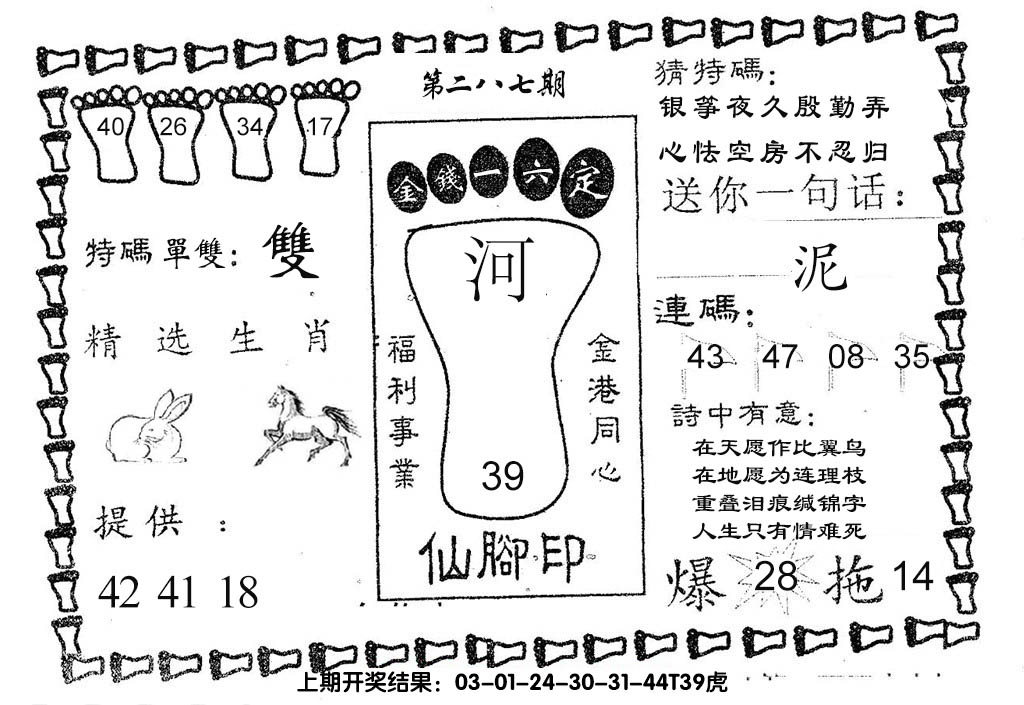 第二八七期
40 26 34 17
特碼單雙：雙
精选生肖
提供：
42 41 18
金錢一六定
河
福利事業
金港同心
39
仙腳印
猜特碼：
银筝夜久殷勤弄
心怯空房不忍归
送你一句话：
泥
連碼：
43 47 08 35
詩中有意：
在天愿作比翼鸟
在地愿为连理枝
重叠泪痕缄锦字
人生只有情难死
爆 28 拖 14
上期开奖结果：03-01-24-30-31-44T39虎